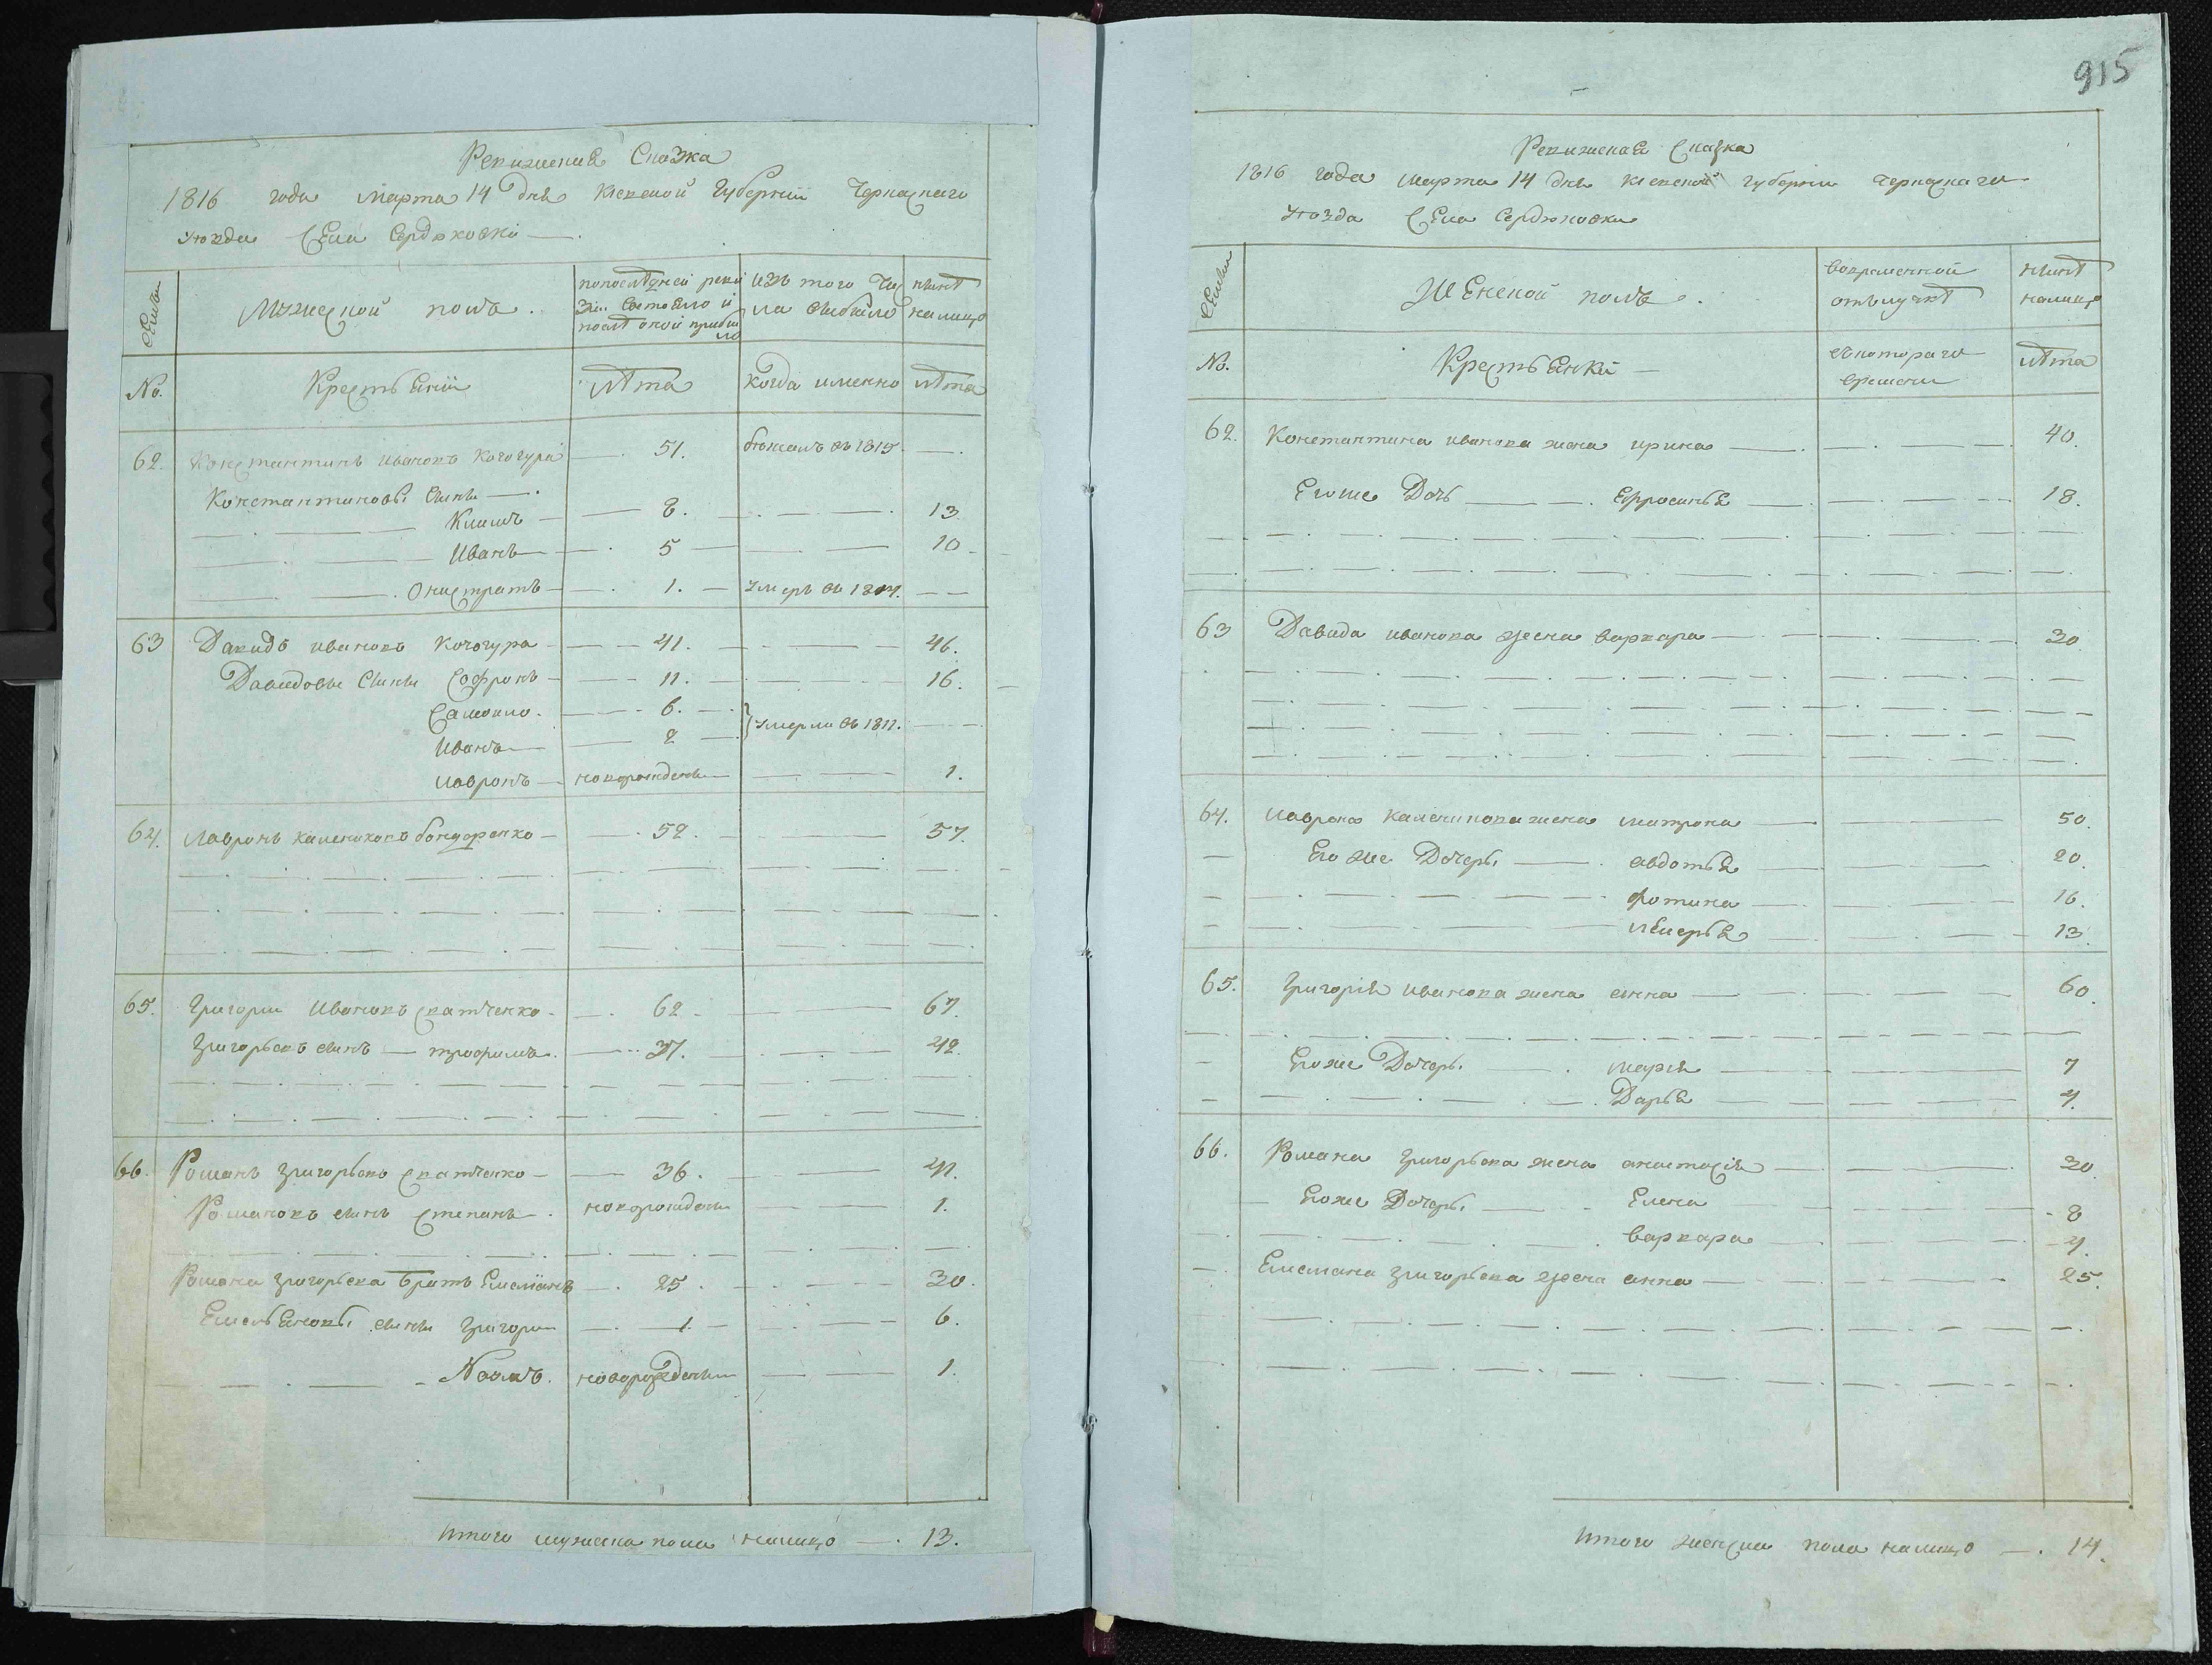 915
Ревижения Сказка
1816 года Марта 14 дня Киевской Губернии Черкаскаго
уезда Села Сердюковки
Семьи
Мужеской полъ.
по последней реви
зіи состояло и
после оной прибы
ло
изъ того чис
ла выбыло
ныне
налицо
No. Крестьяни лѣта когда именно лѣта
62. Константинъ Ивановъ Кочогура 51. бежалъ въ 1815.
Константиновы сыны
Климъ 8. 13
Иванъ 5 10
Онистратъ 1. умеръ въ 1814.
63 Давидъ Ивановъ Кочогура 41. 46.
Давидовы Сыны Софронъ 11. 16.
Самоило. 6. умерли въ 1811.
Иванъ 2
Лавронъ новорожденъ 1.
64. Лавронъ Калениковъ бондаренко 52. 57.
65. Григории Ивановъ Скатченко 62 67.
Григорьевъ сынъ трофимъ. 37. 42.
66. Романъ Григорьевъ Скатченко 36. 41.
Романовъ сынъ Степанъ новорожденъ 1.
Романа Григорьева братъ Емелиянъ 25. 30.
Емельяновы сыны Григори 1. 6.
Наумъ. новорожденъ 1.
Итого мужеска пола налицо 13.
Ревижская Сказка
1816 года Марта 14 дня Киевской Губернии Черкаскаго
уезда Села Сердюковки
Семьи
Женской полъ.
во временной
отлучкѣ
нынѣ
налицо
No. Крестьянки
съ котораго
времени
лѣта
62. Константина Иванова жена ирина 40.
Его же Дочь Ефросинья 18.
63 Давида иванова жена варвара 30
64. Лаврона Каленикова жена матрона 50.
Его же Дочери авдотья 20.
фотина 16.
лекерья 13.
65. Григорія иванова жена анна 60.
Его же Дочери марія 7
Дарья 4.
66. Романа Григорьева жена анастасія 30
Его же Дочери Елена 8
варвара 4.
Емелиана Григорьева жена анна 25.
Итого женска пола налицо 14.